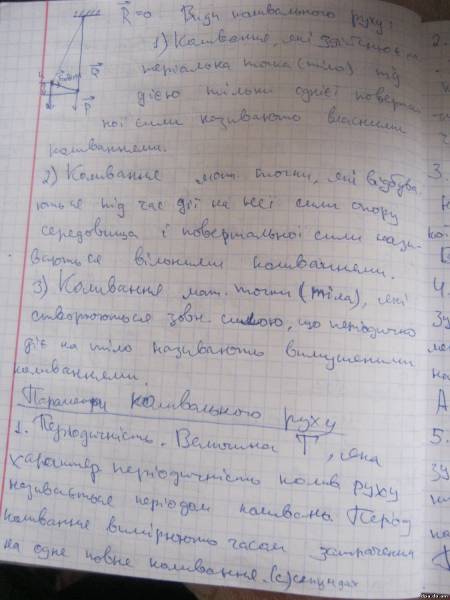 R=0 Види коливального руху:
1) Коливання, які здійснює ма
теріальна точка (тіло) під
дією тільки однієї поверта
ної сили називають власними
коливаннями.
2) Коливання мат. точки, які відбува
ються під час дії на неї сили опору
середовища і повертальної сили нази-
ваються вільними коливаннями.
3) Коливання мат. точки (тіла), які
створюються зовн. силою, що періодично
діє на тіло називають вимушеними
коливаннями.
Параметри коливального руху
1. Періодичність. Величина T, яка
характер періодичність колив руху
називається періодом коливань Період
коливання вимірюють часом затрачення
на одне повне коливання. (с) секундах
2.
3.
4.
зу
А
5.
зу
dpa.do.am